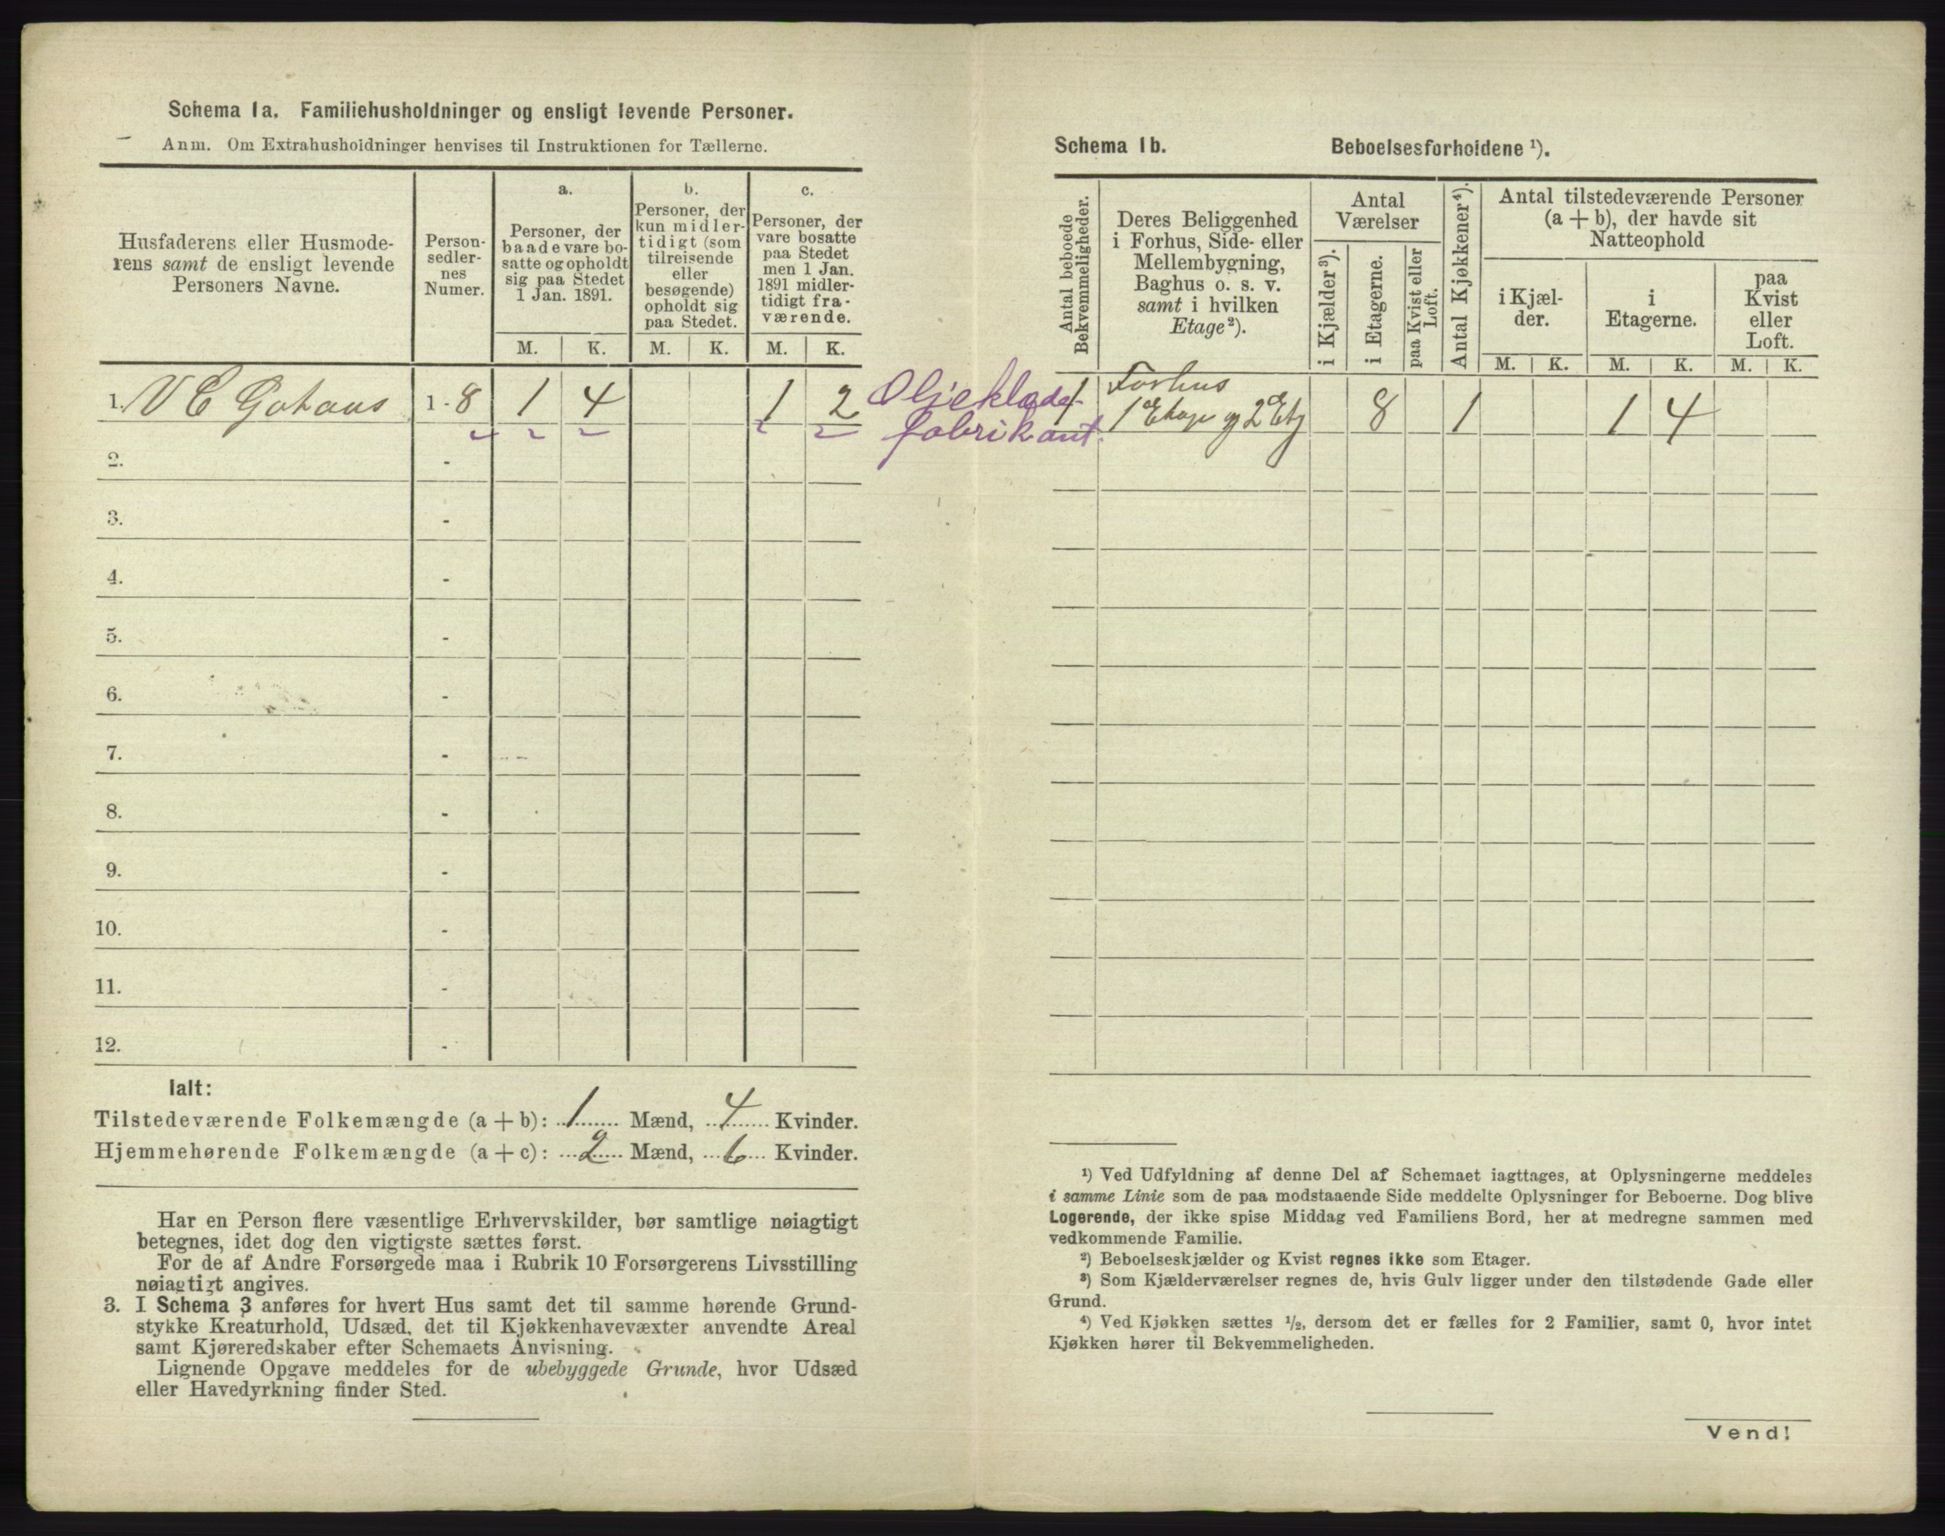 Schema 1a. Familiehusholdninger og ensligt levende Personer.
Anm. Om Extrahusholdninger henvises til Instruktionen for Tællerne.
Husfaderens eller Husmode-
rens samt de ensligt levende
Personers Navne.
Person-
sedler-
nes
Numer.
a.
Personer, der
baade vare bo-
satte og opholdt
sig paa Stedet
1 Jan. 1891.
b.
Personer, der
kun midler-
tidigt (som
tilreisende
eller
besøgende)
opholdt sig
paa Stedet.
c.
Personer, der
vare bosatte
paa Stedet
men 1 Jan.
1891 midler-
tidigt fra-
værende.
M. K. M. K. M. K.
1. 1 - 8 1 4 1 2
Oljeklæde-
fabrikant.
2. -
3. -
4. -
5. -
6. -
7. -
8. -
9. -
10. -
11. -
12. -
Ialt:
Tilstedeværende Folkemængde (a + b): 1 Mænd, 4 Kvinder.
Hjemmehørende Folkemængde (a + c): 2 Mænd, 6 Kvinder.
Har en Person flere væsentlige Erhvervskilder, bør samtlige nøiagtigt
betegnes, idet dog den vigtigste sættes først.
For de af Andre Forsørgede maa i Rubrik 10 Forsørgerens Livsstilling
nøiagtigt angives.
3. I Schema 3 anføres for hvert Hus samt det til samme hørende Grund-
stykke Kreaturhold, Udsæd, det til Kjøkkenhavevæxter anvendte Areal
samt Kjøreredskaber efter Schemaets Anvisning.
Lignende Opgave meddeles for de ubebyggede Grunde, hvor Udsæd
eller Havedyrkning finder Sted.
Schema 1b. Beboelsesforholdene ¹).
Antal beboede
Bekvemmeligheder.
Deres Beliggenhed
i Forhus, Side- eller
Mellembygning,
Baghus o. s. v.
samt i hvilken
Etage²).
Antal
Værelser
i Kjælder³).
i Etagerne.
paa Kvist eller
Loft.
Antal Kjøkkener⁴).
Antal tilstedeværende Personer
(a + b), der havde sit
Natteophold
i Kjæl-
der.
i
Etagerne.
paa
Kvist
eller
Loft.
M. K. M. K. M. K.
Forhus
1 1 Etage og 2 Etg 8 1 1 4
¹) Ved Udfyldning af denne Del af Schemaet iagttages, at Oplysningerne meddeles
i samme Linie som de paa modstaaende Side meddelte Oplysninger for Beboerne. Dog blive
Logerende, der ikke spise Middag ved Familiens Bord, her at medregne sammen med
vedkommende Familie.
²) Beboelseskjælder og Kvist regnes ikke som Etager.
³) Som Kjælderværelser regnes de, hvis Gulv ligger under den tilstødende Gade eller
Grund.
⁴) Ved Kjøkken sættes ½, dersom det er fælles for 2 Familier, samt 0, hvor intet
Kjøkken hører til Bekvemmeligheden.
Vend!